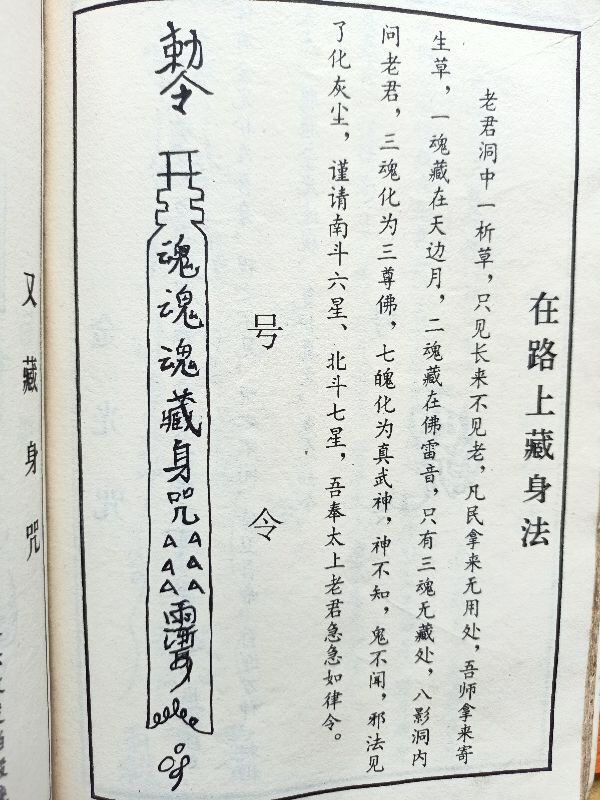 在路上藏身法
老君洞中一析草，只见长来不见老，凡民拿来无用处，吾师拿来寄
生草，一魂藏在天边月，二魂藏在佛雷音，只有三魂无藏处，八影洞内
问老君，三魂化为三尊佛，七魄化为真武神，神不知，鬼不闻，邪法见
了化灰尘，谨请南斗六星、北斗七星，吾奉太上老君急急如律令。
号令
敕令
魂魂魂藏身咒
又藏身咒